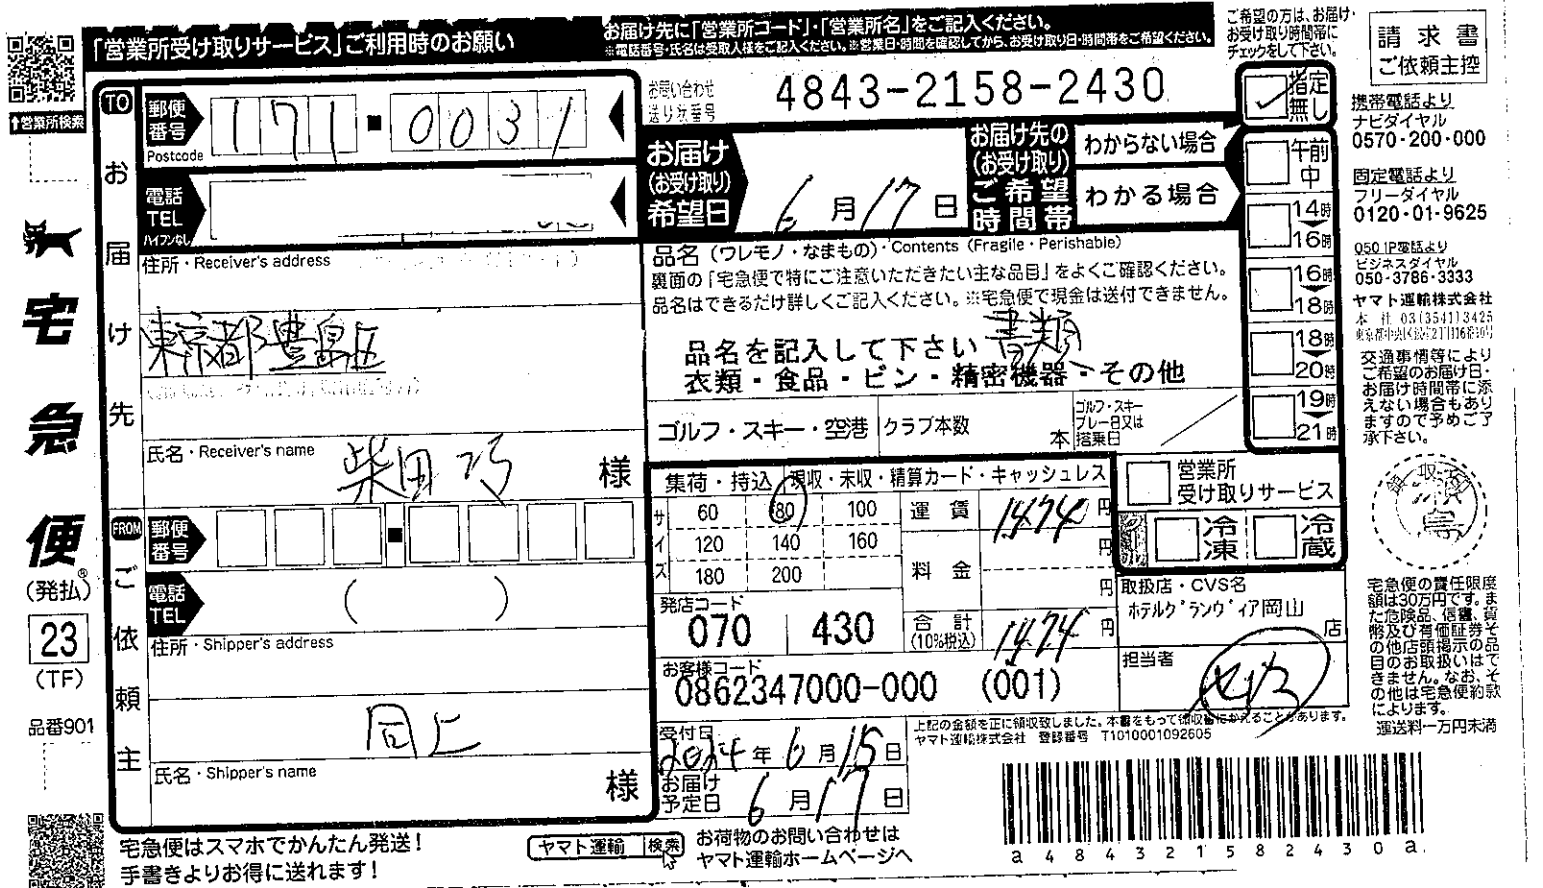 「営業所受け取りサービス」ご利用時のお願い
お届け先に「営業所コード」・「営業所名」をご記入ください。
※電話番号・氏名は受取人様をご記入ください。※営業日・時間を確認してから、お受け取り日・時間帯をご希望ください。
ご希望の方は、お届け・
お受け取り時間帯に
チェックをして下さい。
請求書
ご依頼主控
↑営業所検索
宅急便
(発払)®
23
(TF)
品番901
TO
お届け先
郵便番号
Postcode
171-0031
電話
TEL
ハイフンなし
住所・Receiver's address
東京都豊島区
氏名・Receiver's name
柴田巧
様
FROM
ご依頼主
郵便番号
電話
TEL
( )
住所・Shipper's address
同上
氏名・Shipper's name
様
お問い合わせ
送り状番号
4843-2158-2430
お届け
(お受け取り)
希望日
6月17日
お届け先の
(お受け取り)
ご希望
時間帯
わからない場合
わかる場合
指定無し
午前中
14時
16時
16時
18時
18時
20時
19時
21時
品名(ワレモノ・なまもの)・Contents (Fragile・Perishable)
裏面の「宅急便で特にご注意いただきたい主な品目」をよくご確認ください。
品名はできるだけ詳しくご記入ください。※宅急便で現金は送付できません。
書類
品名を記入して下さい
衣類・食品・ビン・精密機器・その他
ゴルフ・スキー・空港
クラブ本数
本
ゴルフ・スキー
プレー日又は
搭乗日
営業所
受け取りサービス
冷凍
冷蔵
集荷・持込
現収・未収・精算カード・キャッシュレス
サイズ
60 80 100
120 140 160
180 200
運賃
1474円
料金
円
円
合計
(10%税込)
1474円
発店コード
070 430
お客様コード
0862347000-000 (001)
取扱店・CVS名
ホテルグランヴィア岡山
店
担当者
上記の金額を正に領収致しました。本書をもって領収書にかえることがあります。
ヤマト運輸株式会社 登録番号 T1010001092605
受付日
2024年6月15日
お届け
予定日
6月17日
携帯電話より
ナビダイヤル
0570-200-000
固定電話より
フリーダイヤル
0120-01-9625
050 IP電話より
ビジネスダイヤル
050-3786-3333
ヤマト運輸株式会社
本社 03(3541)3425
東京都中央区銀座2丁目16番10号
交通事情等により
ご希望のお届け日・
お届け時間帯に添
えない場合もあり
ますので予めご了
承下さい。
宅急便の責任限度
額は30万円です。ま
た危険品、信書、貨
幣及び有価証券そ
の他店頭掲示の品
目のお取扱いはで
きません。なお、そ
の他は宅急便約款
によります。
運送料一万円未満
宅急便はスマホでかんたん発送!
手書きよりお得に送れます!
ヤマト運輸 検索
お荷物のお問い合わせは
ヤマト運輸ホームページへ
a484321582430a